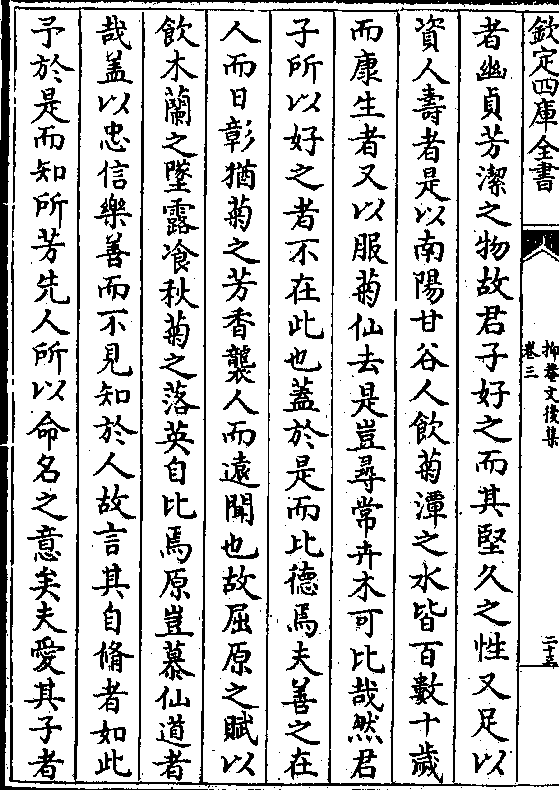 欽定四庫全書
抑菴文後集
卷三
二十五
者幽貞芳潔之物故君子好之而其堅久之性又足以
資人壽者是以南陽甘谷人飲菊潭之水皆百數十歲
而康生者又以服菊仙去是豈尋常卉木可比哉然君
子所以好之者不在此也蓋於是而比德焉夫善之在
人而日彰猶菊之芳香襲人而遠聞也故屈原之賦以
飲木蘭之墜露飡秋菊之落英自比焉原豈慕仙道者
哉蓋以忠信樂善而不見知於人故言其自脩者如此
予於是而知所芳先人所以命名之意矣夫愛其子者